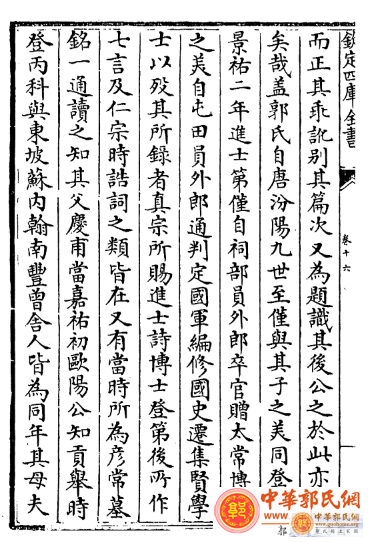 欽定四庫全書
卷十六
而正其乖訛别其篇次又為題識其後公之於此亦
矣哉盖郭氏自唐汾陽九世至僅與其子之美同登
景祐二年進士第僅自祠部員外郎卒官贈太常博
之美自屯田員外郎通判定國軍編修國史遷集賢學
士以殁其所錄者真宗所賜進士詩博士登第後所作
七言及仁宗時誥詞之類皆在又有當時所為彦常墓
銘一通讀之知其父慶甫當嘉祐初歐陽公知貢舉時
登丙科與東坡蘇内翰南豐曾舍人皆為同年其母夫
中華郭氏網
郭